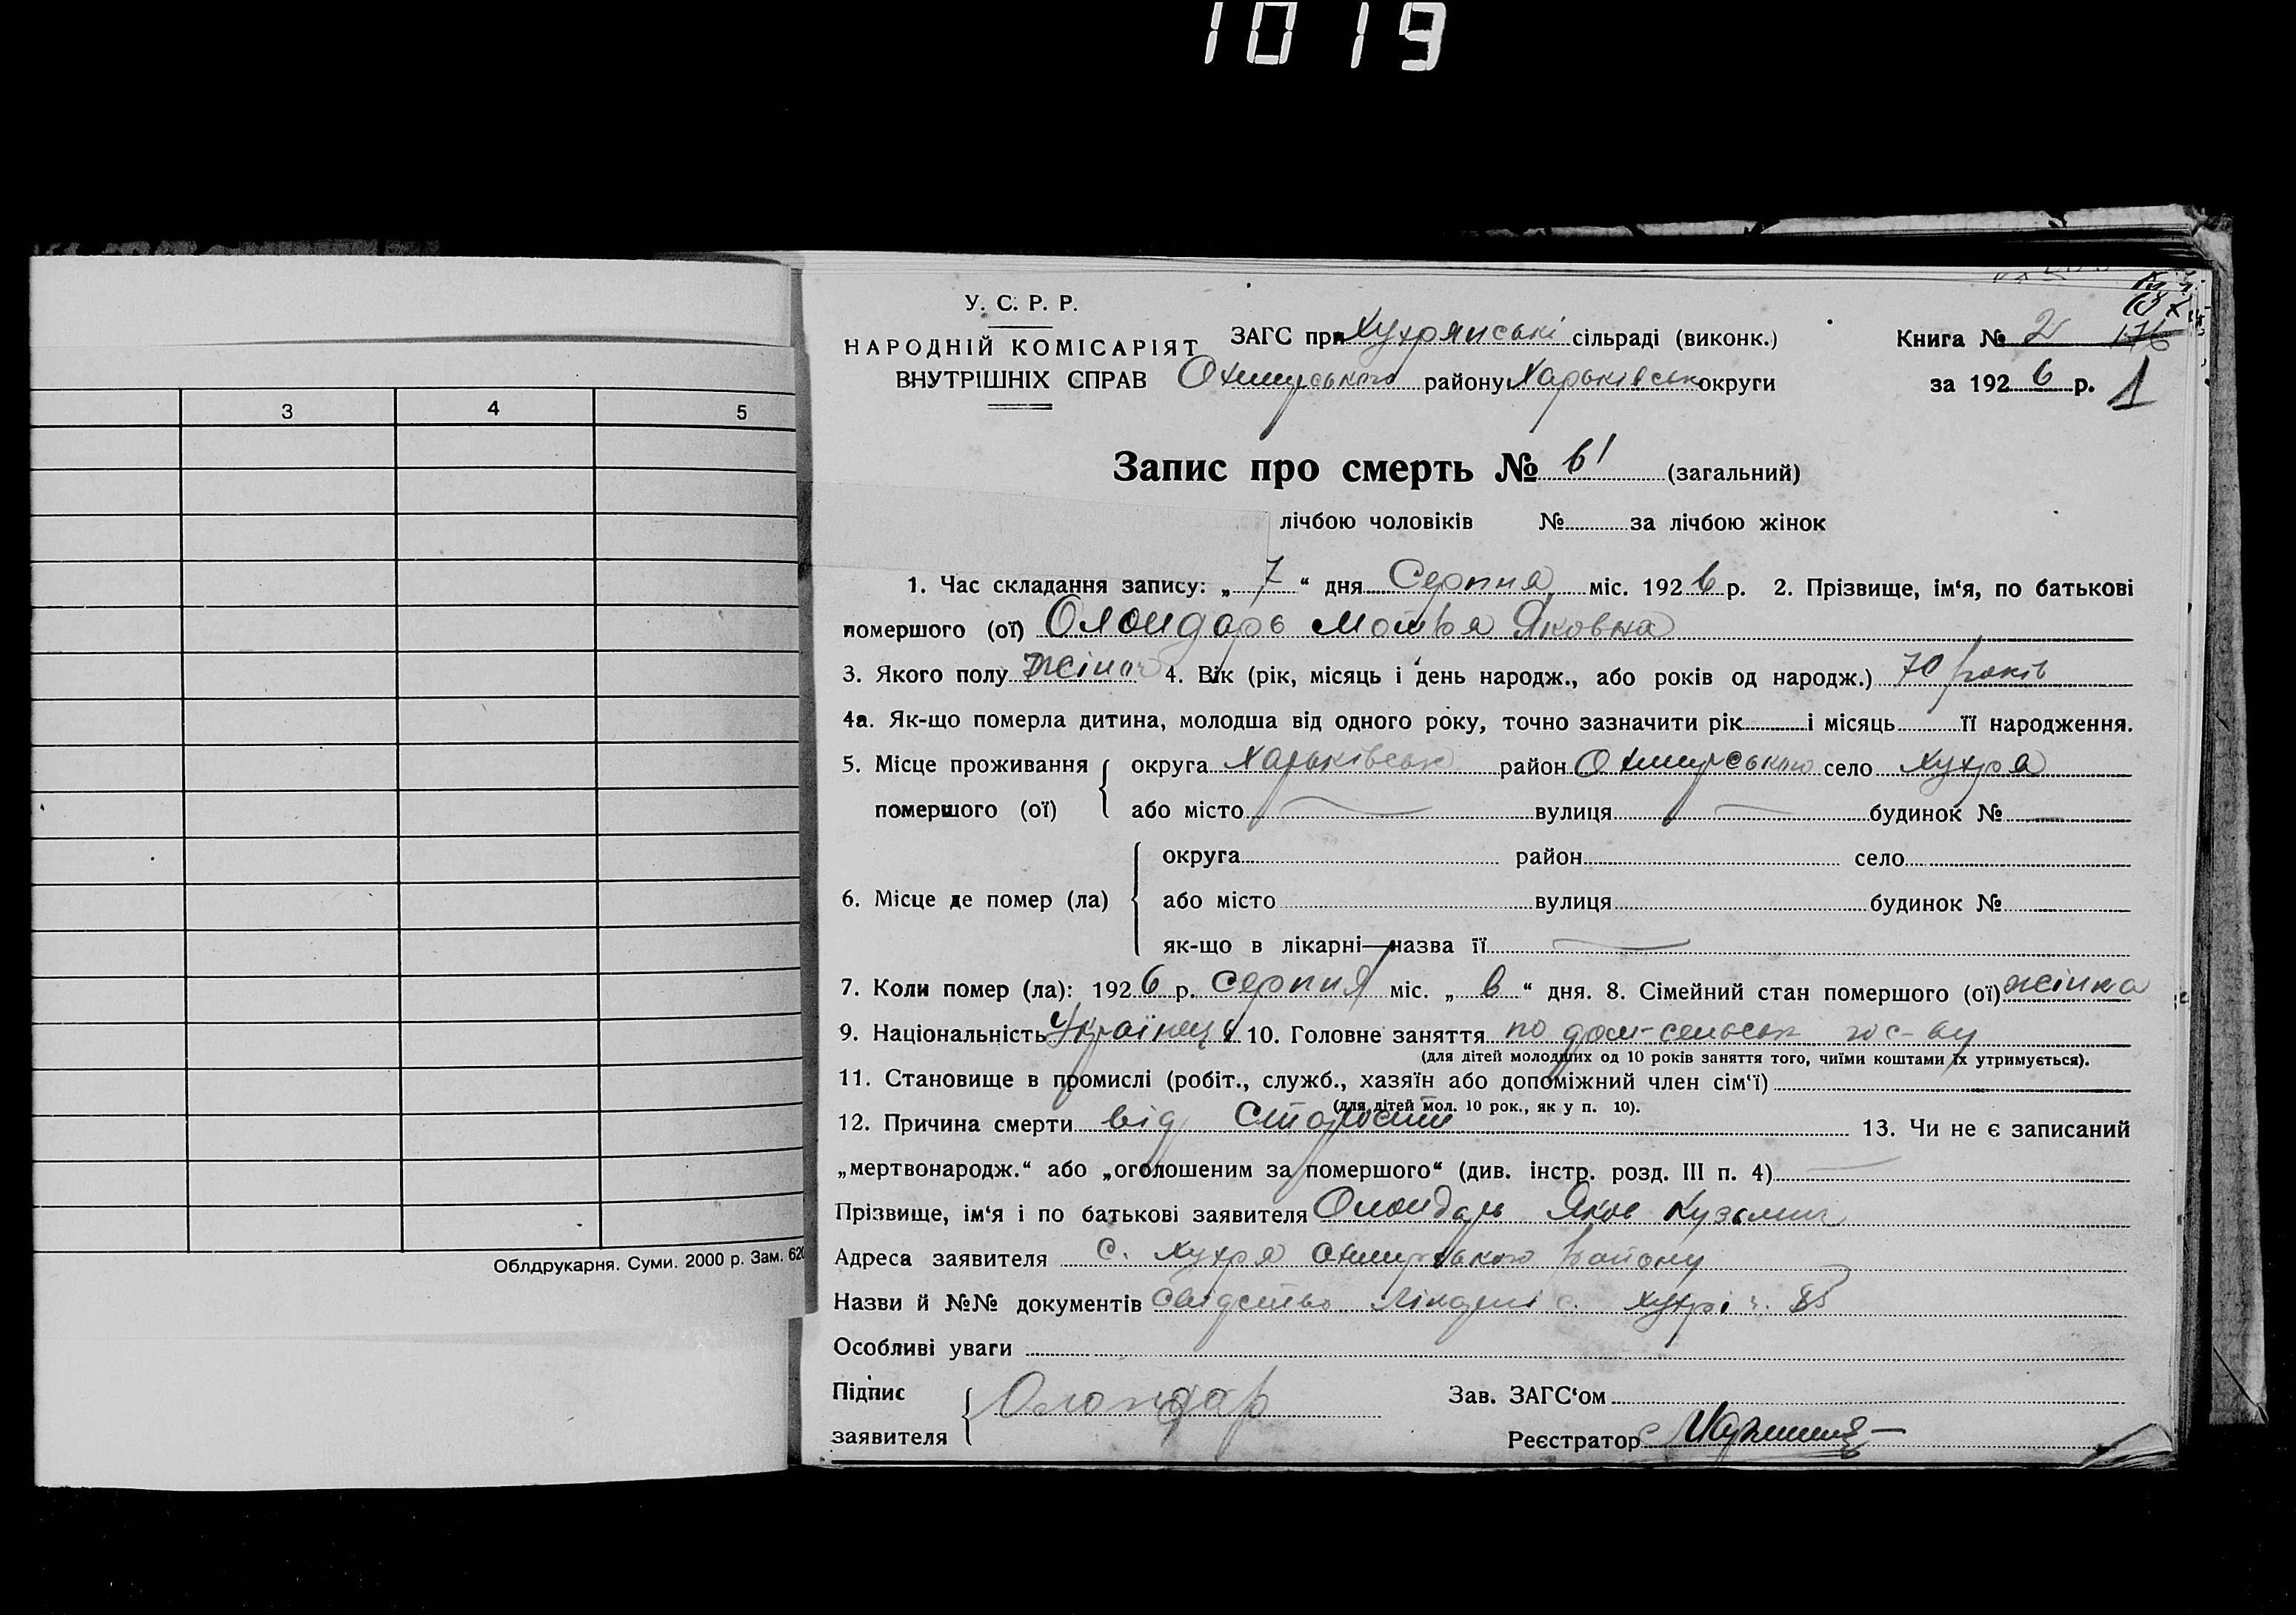 1019
3 4 5
Облдрукарня. Суми. 2000 р. Зам. 620
У. С. Р. Р.
НАРОДНІЙ КОМІСАРІЯТ
ВНУТРІШНІХ СПРАВ
ЗАГС при Хухрянські сільраді (виконк.)
Охтирського району Харьківськ округи
Книга № 2
за 1926 р. 1
Запис про смерть № 61 (загальний)
лічбою чоловіків № за лічбою жінок
1. Час складання запису: „7“ дня Серпня міс. 1926 р. 2. Прізвище, ім‘я, по батькові
помершого (ої) Олондарь Мотря Яковна
3. Якого полу жіноч 4. Вік (рік, місяць і день народж., або років од народж.) 70 років
4а. Як-що померла дитина, молодша від одного року, точно зазначити рік і місяць її народження.
5. Місце проживання округа Харьківськ район Охтирського село Хухря
помершого (ої) або місто вулиця будинок №
округа район село
6. Місце де помер (ла) або місто вулиця будинок №
як-що в лікарні—назва її
7. Коли помер (ла): 1926 р. Серпня міс. „6“ дня. 8. Сімейний стан помершого (ої) жінка
9. Національність Українец 10. Головне заняття по дом-сельськ гос-ву
(для дітей молодших од 10 років заняття того, чиїми коштами їх утримується).
11. Становище в промислі (робіт., служб., хазяїн або допоміжний член сім‘ї)
(для дітей мол. 10 рок., як у п. 10).
12. Причина смерти від старости 13. Чи не є записаний
„мертвонародж.“ або „оголошеним за помершого“ (див. інстр. розд. III п. 4)
Прізвище, ім‘я і по батькові заявителя Олондарь Яков Кузьмич
Адреса заявителя С. Хухря Охтирського району
Назви й №№ документів с. Хухрі ч. 85
Особливі уваги
Підпис
заявителя Олондар
Зав. ЗАГС‘ом
Реєстратор